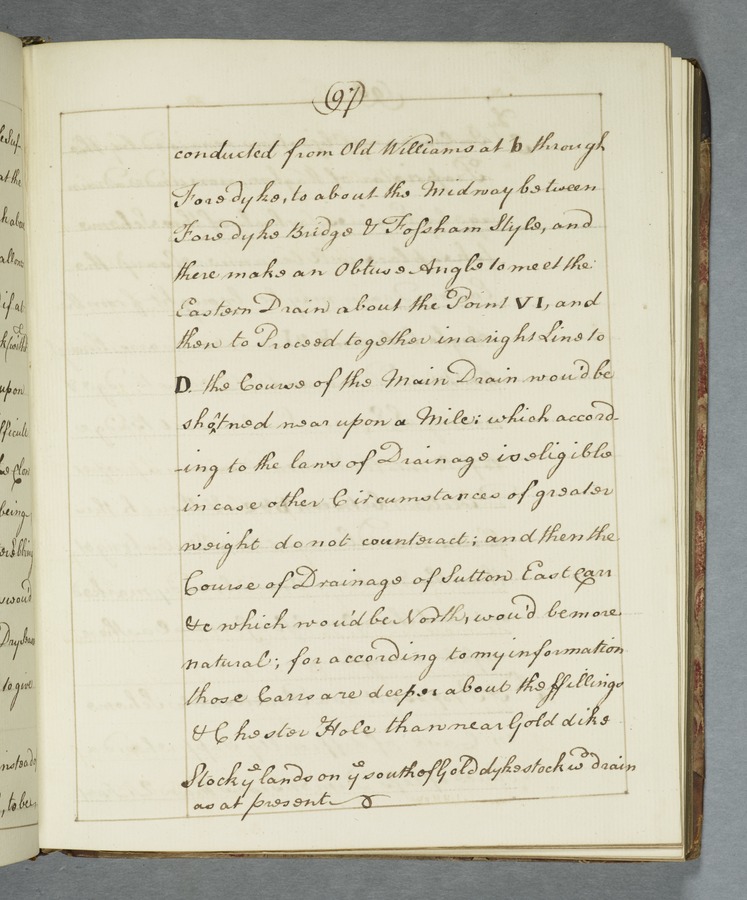 97
conducted from Old Williams at b through
Foredyke, to about the Midway between
Foredyke Bridge & Fossham Style, and
there make an Obtuse Angle to meet the
Eastern Drain about the Point VI, and
then to Proceed together in a right Line to
D. the Course of the Main Drain wou'd be
shotned near upon a Mile: which accord-
-ing to the laws of Drainage is eligible
in case other Circumstances of greater
weight do not counteract; and then the
Course of Drainage of Sutton East Carr
&c which wou'd be North, wou'd be more
natural; for according to my information
those Carrs are deeper about the ffillings
& Chester Hole than near Gold dike
Stock ye lands on ye south of Gold dyke stock wd drain
as at present